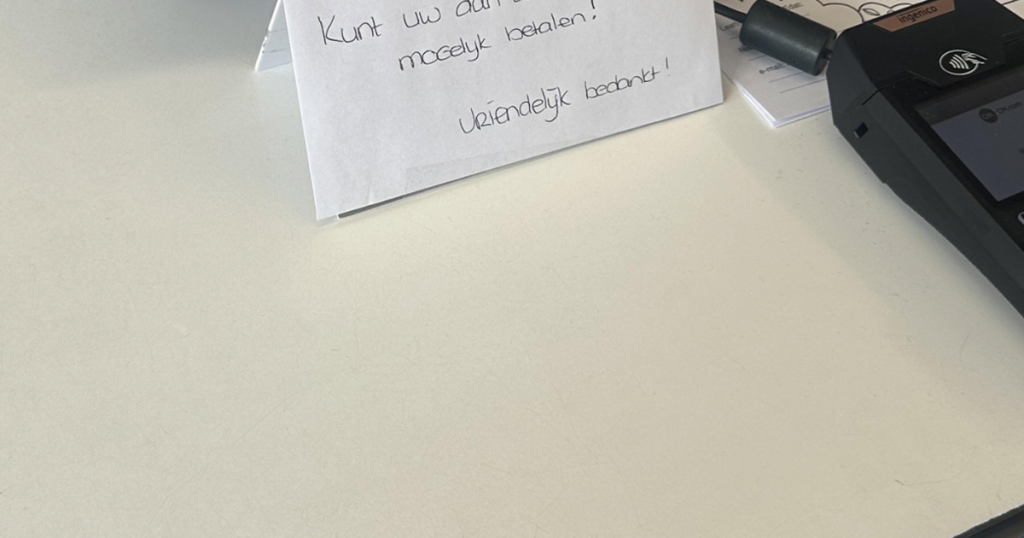 Kunt uw
mogelyk betalen!
Vriendelijk bedankt!
ingenico